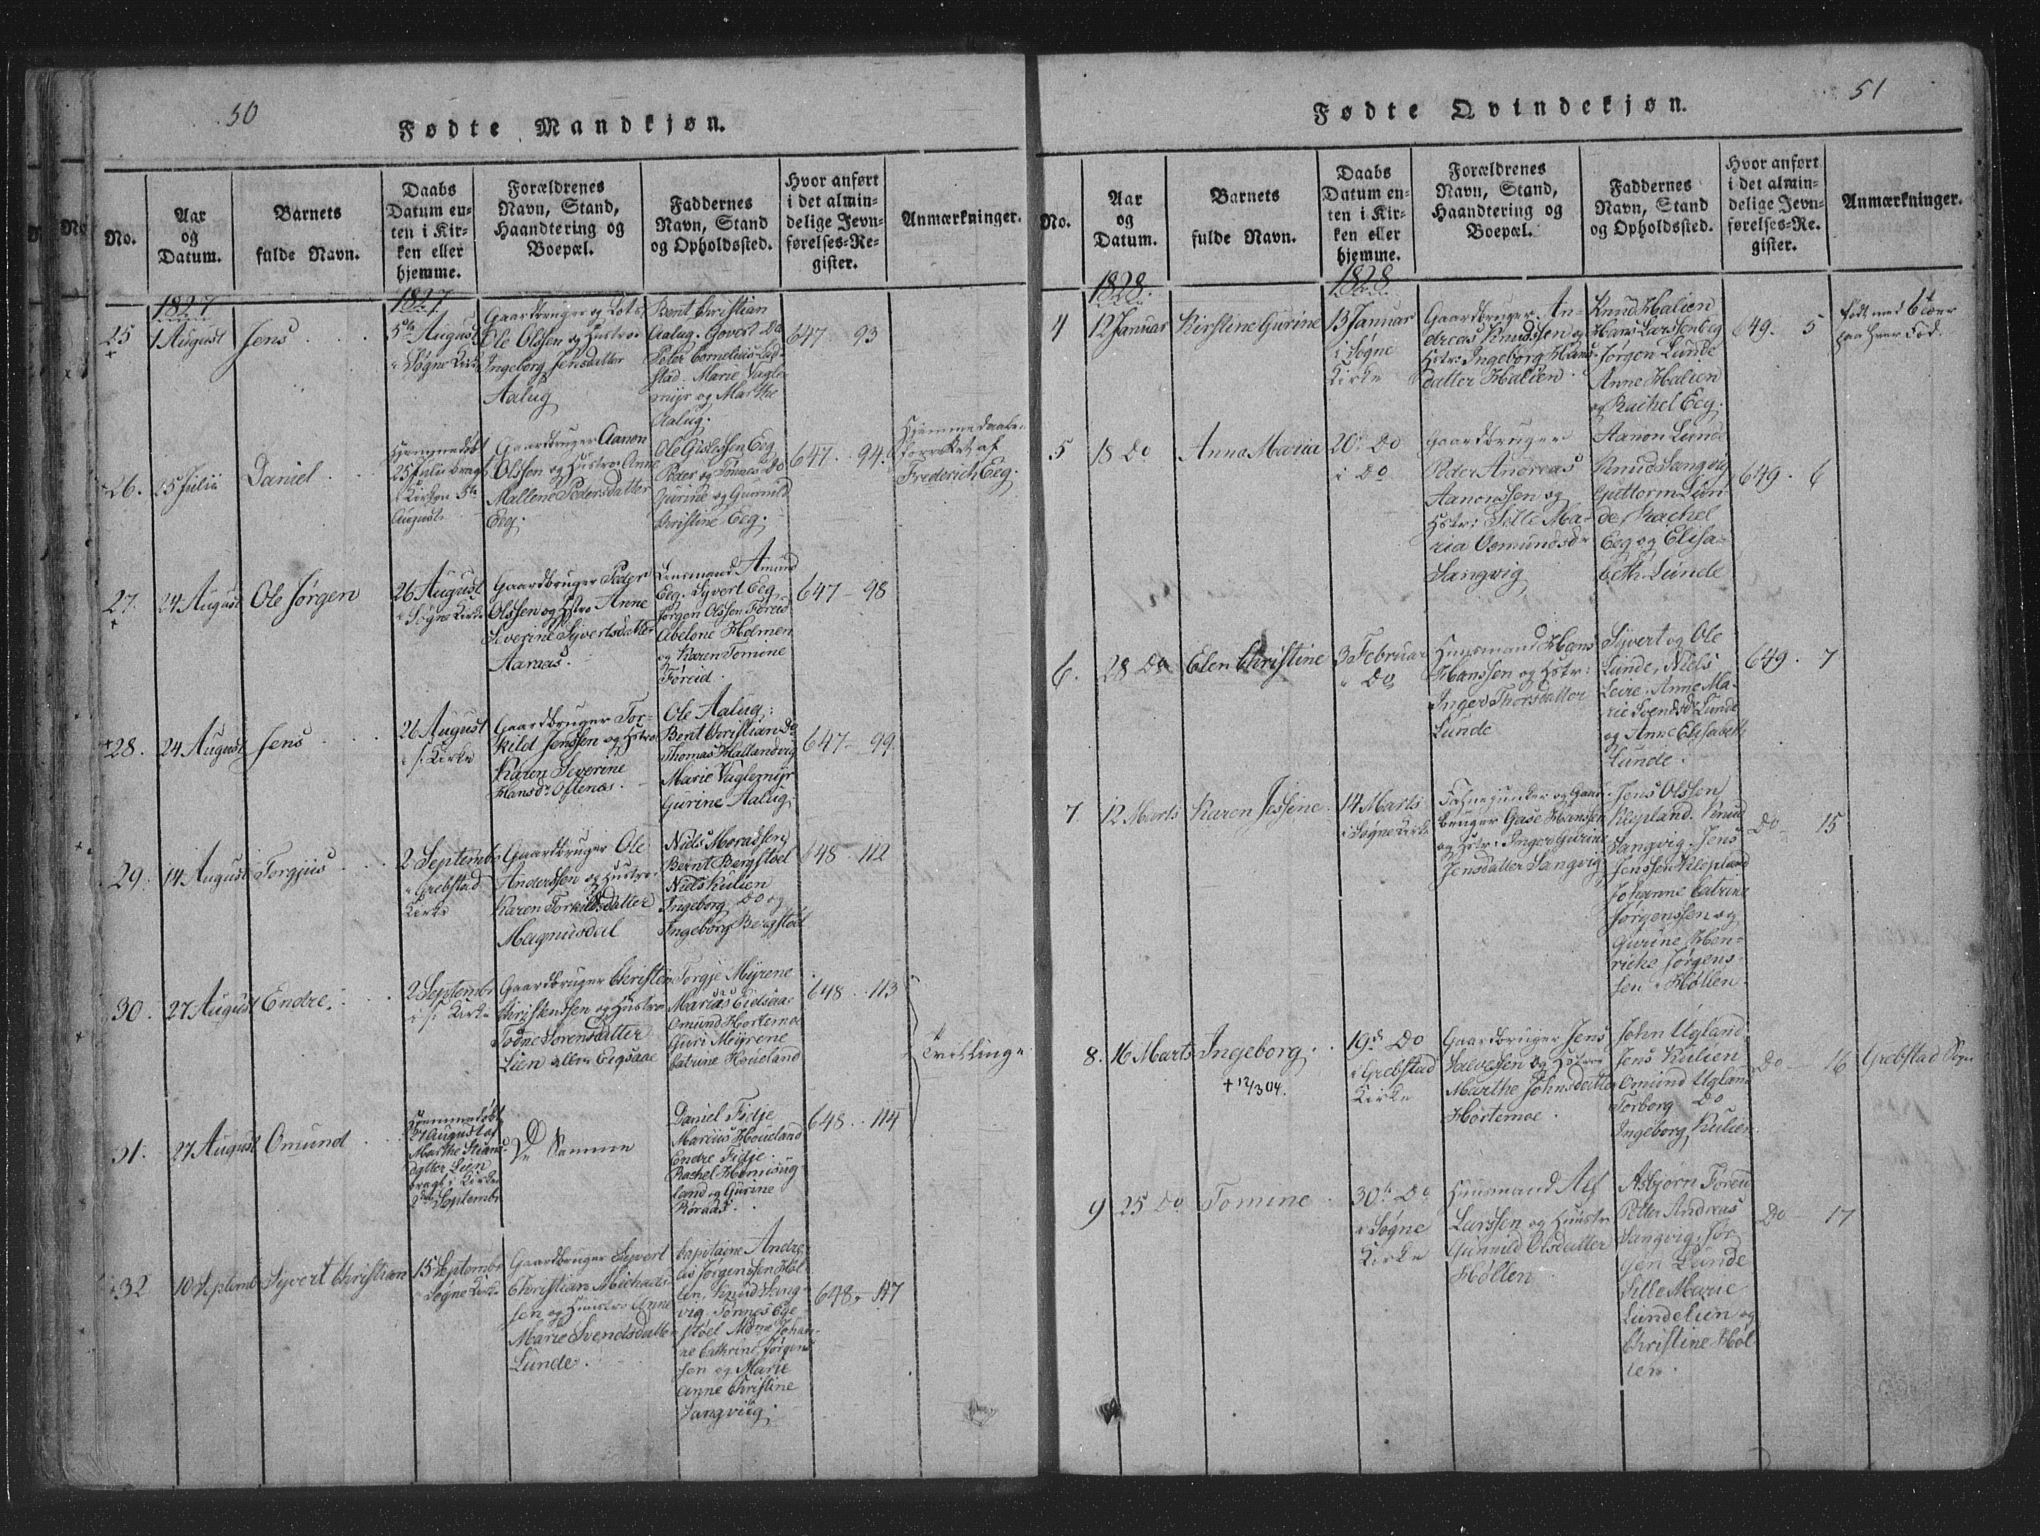 50
Fødte Mandkjøn.
No.
Aar
og
Datum.
Barnets
fulde Navn.
Daabs
Datum en-
ten i Kir-
ken eller
hjemme.
Forældrenes
Navn, Stand,
Haandtering og
Boepæl.
Faddernes
Navn, Stand
og Opholdssted.
Hvor anført
i det almin-
delige Jevn-
førelses-Re-
gister.
Anmærkninger.
1827
1827
25
+
1 August
Jens
5te August
i Søgne Kirke
Gaardbruger og Lots
Ole Olssen og Hustroe
Ingeborg Jensdatter
Aalug
Bent Christian
Aalug. Govert Do
Peter Cornelius
stad. Marie Vagle-
myr og Marthe
Aalug.
647 - 93
26.
15 Julii
Daniel
Hjemmedøbt
25 Julii bragt
i Kirken 5te
August
Gaardbruger Aanon
Olssen og Hustroe Anne
Mallene Pedersdatter
Eeg.
Ole Gislessen Eeg
Peder og Tønnes Do
Gurine og Gunnild
Christine Eeg.
647 - 94.
Hjemmedaaben
forrettet af
Frederich Eeg.
27.
+
24 August
Ole Jørgen
26 August
i Søgne Kirke
Gaardbruger Peder
Olssen og Hstro Anne
Severine Syvertsdatter
Aaraas.
Lensmand Amund
Eeg. Syvert Eeg
Jørgen Olssen Foreid
Abelone Holmen
og Karen Tomine
Foreid.
647 - 98
+28.
24 August
Jens
26 August
i S. Kirke
Gaardbruger Tor-
kild Jenssen og Hstro
Karen Severine
Hansdr. Oftenæs.
Ole Aalug.
Bent Christian Do
Thomas Hallandvig
Marie Vaglemyr
Gurine Aalug.
647 - 99.
29.
14 August
Torgjus
2 Septembr
i Grebstad
Kirke
Gaardbruger Ole
Anderssen og Hustroe
Karen Torkildsdatter
Magnusdal
Niels Moradsen
Bernt Bergstøel
Niels Kulien
Ingeborg Do og
Ingeborg Bergstøel
648 - 112
30.
27 August
Endre.
2 Septembr
i S. Kirke
Gaardbruger Christen
Christenssen og Hustroe
Todne Sorensdatter
Lien
Torgje Myrene
Marias Eidsaae
Omund Hortemoe
Guri Myrene
Catrine Houeland
648 - 113
Trillinge
31.
27 August
Omund
Hjemmedøbt
27 August af
Marthe
datter Lien
bragt i Kirke
2den Septembr
De Samme
Daniel Fidje
Marcus Houeland
Endre Fidje.
Rachel
land og Gurine
Roraas.
648 - 114
+32
10 Septembr
Syvert Christian
15 Septembr
i Søgne Kirke
Gaardbruger Syvert
Christian Michaels-
sen og Hustroe Anne
Marie Svendsdatter
Lunde.
Capitaine Andre-
as Jørgenssen Høl-
len, Knud Lang-
vig. Tønnes Ege-
støel. Johan-
ne Cathrine Jørgens-
sen og Marie
Anne Christine
Langviig.
648 - 117
51
Fødte Qvindekjøn.
No.
Aar
og
Datum.
Barnets
fulde Navn.
Daabs
Datum en-
ten i Kir-
ken eller
hjemme.
Forældrenes
Navn, Stand,
Haandtering og
Boepæl.
Faddernes
Navn, Stand
og Opholdssted.
Hvor anført
i det almin-
delige Jevn-
førelses-Re-
gister.
Anmærkninger.
1828.
1828
4
12 Januar
Kirstine Gurine
13 Januar
i Søgne
Kirke
Gaardbruger An-
dreas Knudssen og
Hstr: Ingeborg Hans-
datter Halien.
Knud Halien
Hans Larssen Eeg
Jørgen Lunde
Anne Halien
og Rachel Eeg.
649. 5
født med 6 Tæer
paa hver Fod.
5
18 Do
Anna Maria
20. Do
i Do
Gaardbruger
Peder Andreas
Aanonssen og
Hstr: Sille Ma-
ria Osmundsdr
Langvig
Aanon Lunde
Knud Langvig
Guttorm Lun-
de, Rachel
Eeg og Elisa-
beth Lunde
649. 6
6.
28 Do
Elen Christine
3 Februar
i Do
Huusmand Hans
Hanssen og Hstr:
Inger Thorsdatter
Lunde
Syvert og Ole
Lunde, Niels
Leire. Anne Ma-
rie Svendsdr Lunde
og Anne Elisabeth
Lunde.
649. 7
7
12 Marts
Karen Jesine
14 Marts
i Søgne Kirke
Fahnejunker og Gaard-
bruger Gase Hanssen
og Hstr: Inger Gurine
Jensdatter Langvig
Jens Olssen
Klepland. Knud
Langvig. Jens
Jenssen Klepland
Johanne Catrine
Jørgenssen og
Gurine Hen-
ricke Jørgens-
sen Høllen.
Do - 15
8.
16 Marts
Ingeborg.
+ 12/3 04.
19de Do
i Grebstad
Kirke
Gaardbruger Jens
Salvessen og Hstroe
Marthe Johnsdatter
Hortemoe.
John Ugland
Jens Kulien
Omund Ugland
Torborg Do
Ingeborg Kulien
Do - 16
Grebstad Sogn
9
25 Do
Tomine
30te Do
i Søgne
Kirke
Huusmand Alf
Larssen og Huustr
Gunnild Olsdatter
Høllen
Asbjørn Foreid
Petter Andreas
Langvig, Jør-
gen Lunde
Sille Marie
Lundelien og
Christine Høl-
len.
Do - 17